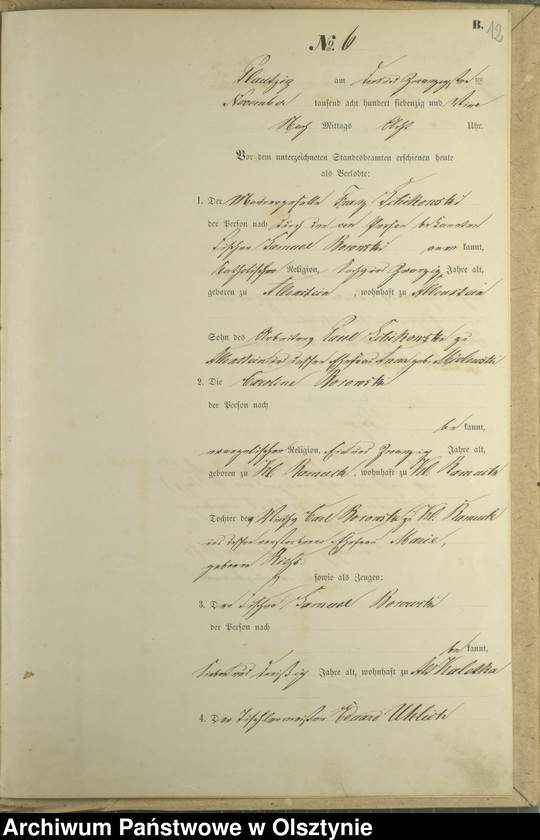 B.
12
№. 6
Plautzig am drei und zwanzigsten ten
November tausend acht hundert siebenzig und vier
Nach Mittags Uhr.
Vor dem unterzeichneten Standesbeamten erschienen heute
als Verlobte:
1. Der Maurergeselle Franz
der Person nach durch den von Person bekannten
Tischler Samuel Borowski aner kannt,
katholischer Religion, sechs und zwanzig Jahre alt,
geboren zu Allenstein, wohnhaft zu Allenstein
Sohn des Arbeiters Paul zu
Allenstein und dessen Ehefrau Anna geb.
2. Die Caroline Borowski
der Person nach
be kannt,
evangelischer Religion, ein und zwanzig Jahre alt,
geboren zu Kl. Ramuck, wohnhaft zu Kl. Ramuck
Tochter des Carl Borowski zu Kl. Ramuck
und dessen verstorbener Ehefrau Marie,
geborne
sowie als Zeugen:
3. Der Tischler Samuel Borowski
der Person nach
be kannt,
Sieben und dreißig Jahre alt, wohnhaft zu Alt Kaletka
4. Der Tischlermeister Eduard Uhlich
Archiwum Państwowe w Olsztynie